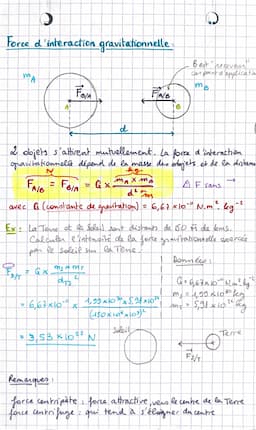 Force d'interaction gravitationnelle.
m_A
F_B/A
F_A/B
m_B
A
B
d
2 objets s'attirent mutuellement. La force d'interaction
gravitationnelle dépend de la masse des objets et de la distance
N kg
F_A/B = F_B/A = G × m_A × m_B / d² m
⚠ F sans →
avec G (constante de gravitation) = 6,67 × 10⁻¹¹ N.m².kg⁻²
Ex: La Terre et le Soleil sont distants de 150 M de kms.
Calculer l'intensité de la force gravitationnelle exercée
par le soleil sur la Terre.
F_S/T = G ×
Données:
G = 6,67 × 10⁻¹¹ N.m².kg⁻²
= 6,67 × 10⁻¹¹ ×
= 3,53 × 10²² N
Soleil
Terre
F_S/T
Remarques:
force centripète: force attractive, vers le centre de la Terre
force centrifuge: qui tend à s'éloigner du centre